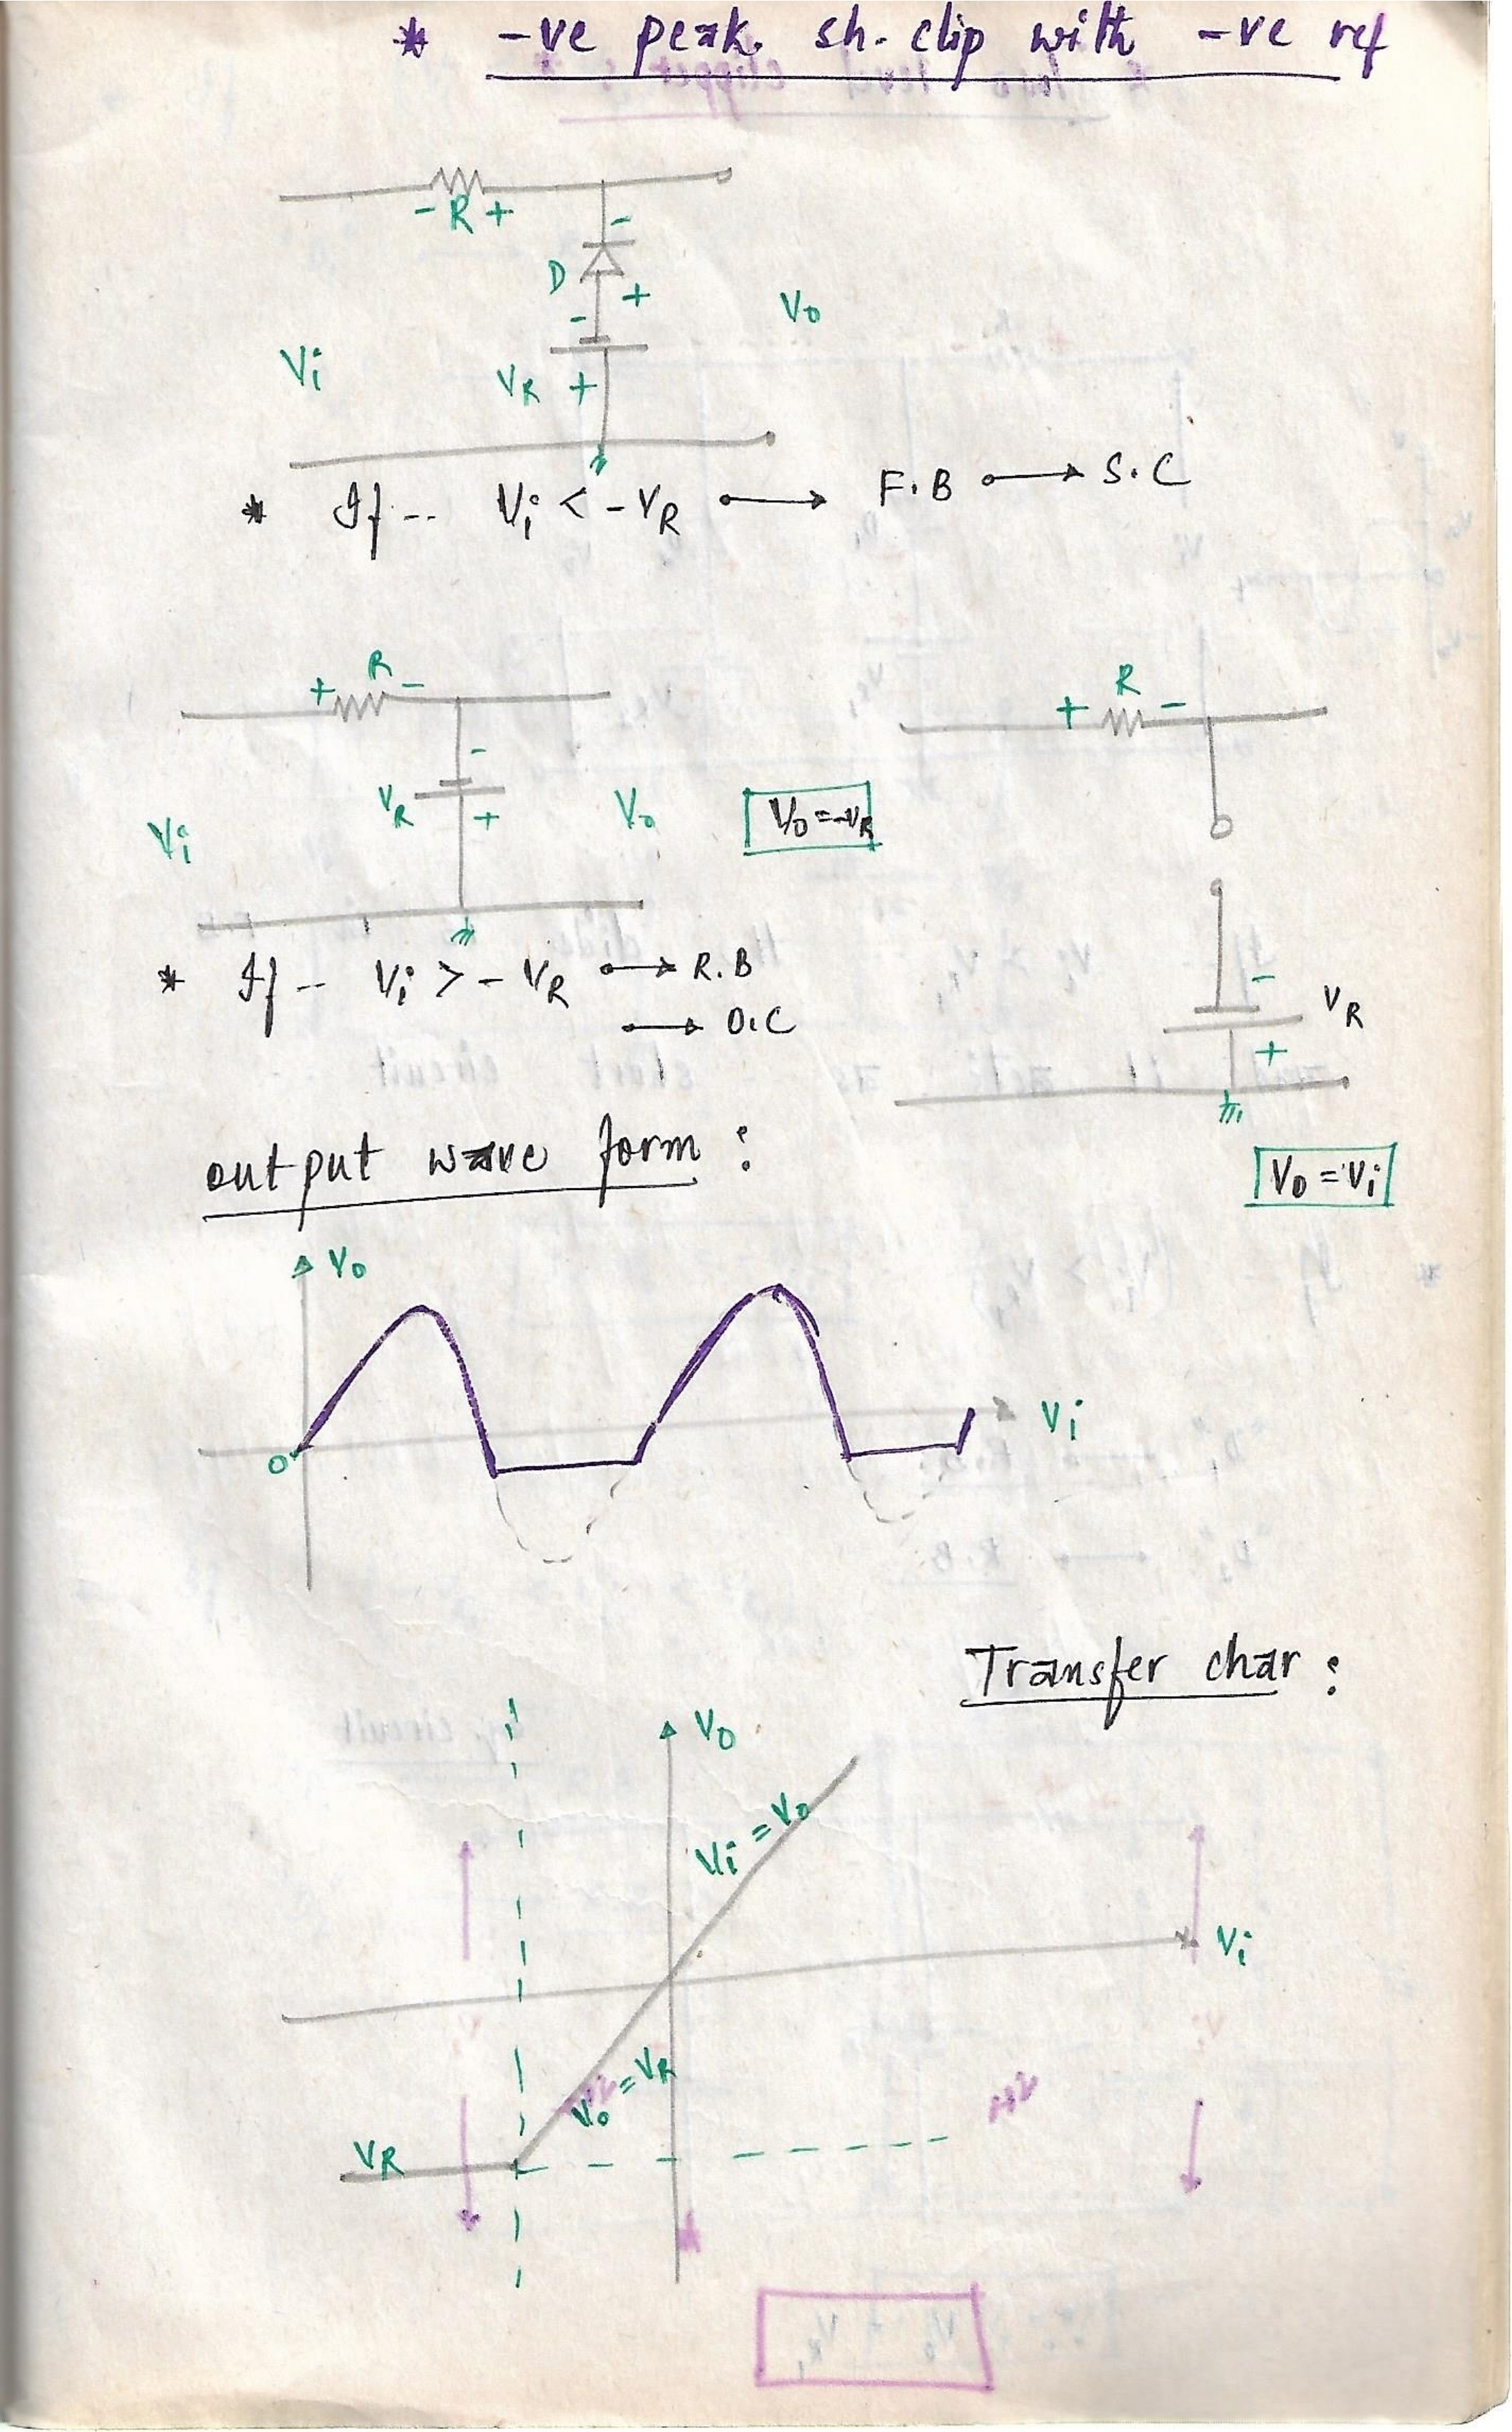 * -ve peak. sh. clip with -ve ref
- R +
-
D
+
-
Vi
VR +
Vo
* If -- Vi < -VR → F.B → S.C
+ R -
-
VR
+
Vi
Vo
Vo = -VR
+ R -
-
VR
+
* If -- Vi > - VR → R.B
→ O.C
Vo = Vi
output wave form :
Vo
0
Vi
Transfer char :
Vo
Vi = Vo
Vi
Vo = VR
VR